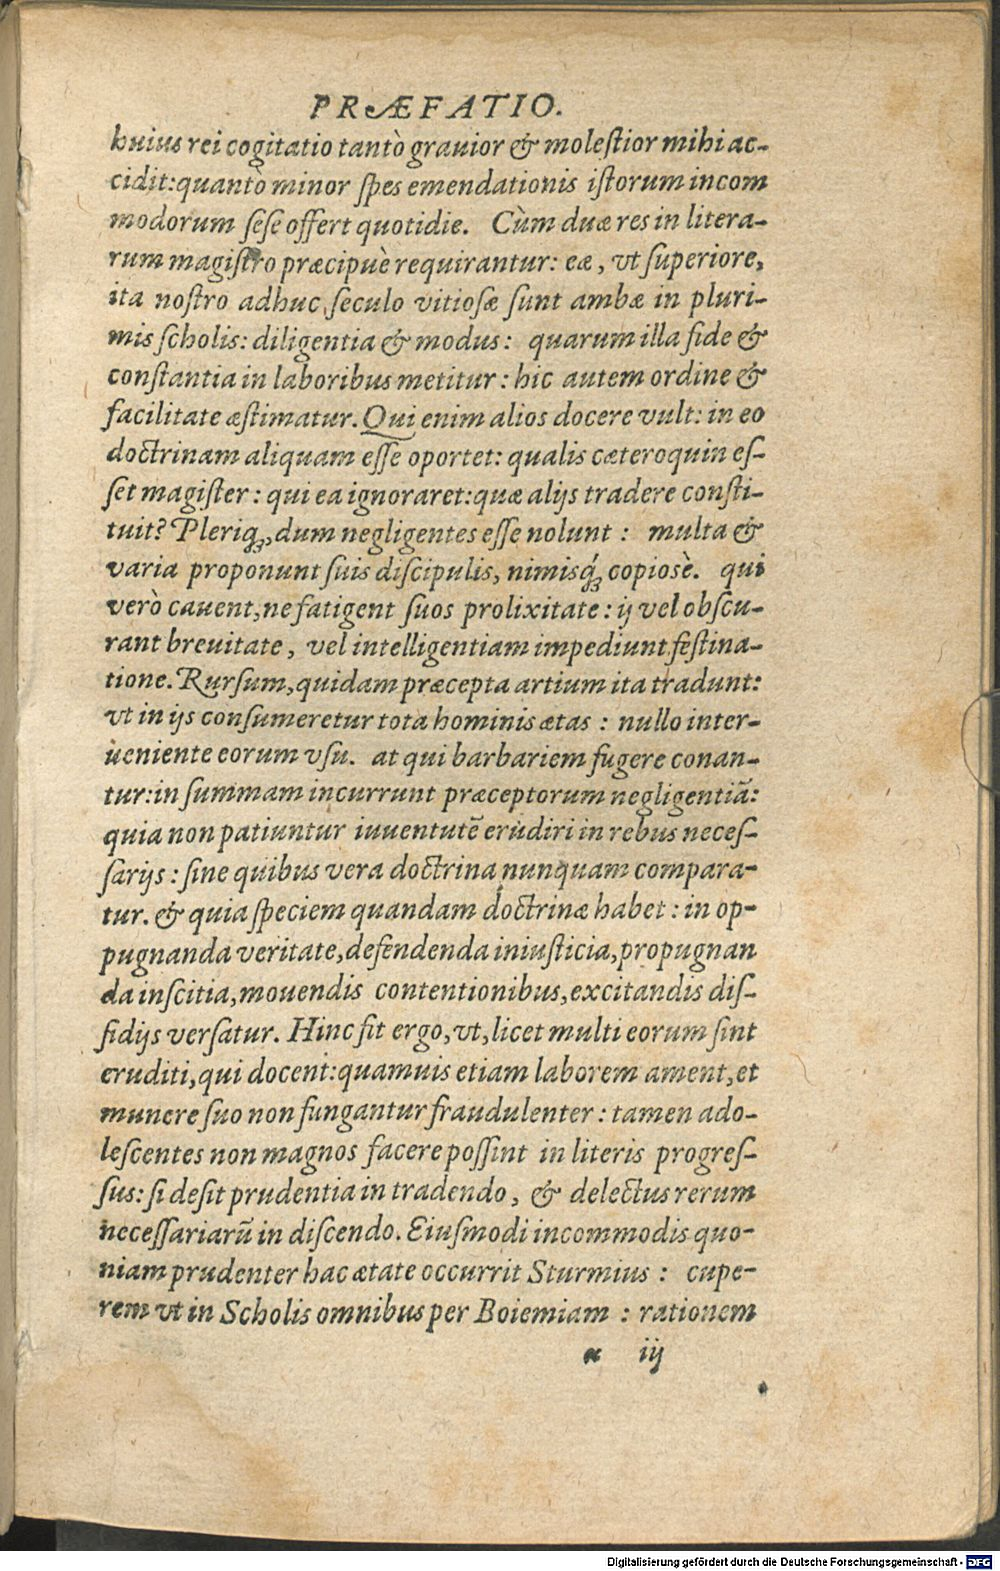 PRÆFATIO.
huius rei cogitatio tantò grauior & molestior mihi ac-
cidit: quantò minor spes emendationis istorum incom
modorum sese offert quotidie. Cùm duæ res in litera-
rum magistro præcipuè requirantur: eæ, vt superiore,
ita nostro adhuc seculo vitiosæ sunt ambæ in pluri-
mis scholis: diligentia & modus: quarum illa fide &
constantia in laboribus metitur: hic autem ordine &
facilitate æstimatur. Qui enim alios docere vult: in eo
doctrinam aliquam esse oportet: qualis cæteroquin es-
set magister: qui ea ignoraret: quæ alijs tradere consti-
tuit? Pleriq;, dum negligentes esse nolunt: multa &
varia proponunt suis discipulis, nimisq́; copiosè. qui
verò cauent, ne fatigent suos prolixitate: ij vel obscu-
rant breuitate, vel intelligentiam impediunt festina-
tione. Rursum, quidam præcepta artium ita tradunt:
vt in ijs consumeretur tota hominis ætas: nullo inter-
ueniente eorum vsu. at qui barbariem fugere conan-
tur: in summam incurrunt præceptorum negligentiā:
quia non patiuntur iuuentutē erudiri in rebus neces-
sarijs: sine quibus vera doctrina nunquam compara-
tur. & quia speciem quandam doctrinæ habet: in op-
pugnanda veritate, defendenda iniusticia, propugnan
da inscitia, mouendis contentionibus, excitandis dis-
sidijs versatur. Hinc fit ergo, vt, licet multi eorum sint
eruditi, qui docent: quamuis etiam laborem ament, et
munere suo non fungantur fraudulenter: tamen ado-
lescentes non magnos facere possint in literis progres-
sus: si desit prudentia in tradendo, & delectus rerum
necessariarū in discendo. Eiusmodi incommodis quo-
niam prudenter hac ætate occurrit Sturmius: cupe-
rem vt in Scholis omnibus per Boiemiam: rationem
a iij
Digitalisierung gefördert durch die Deutsche Forschungsgemeinschaft - DFG